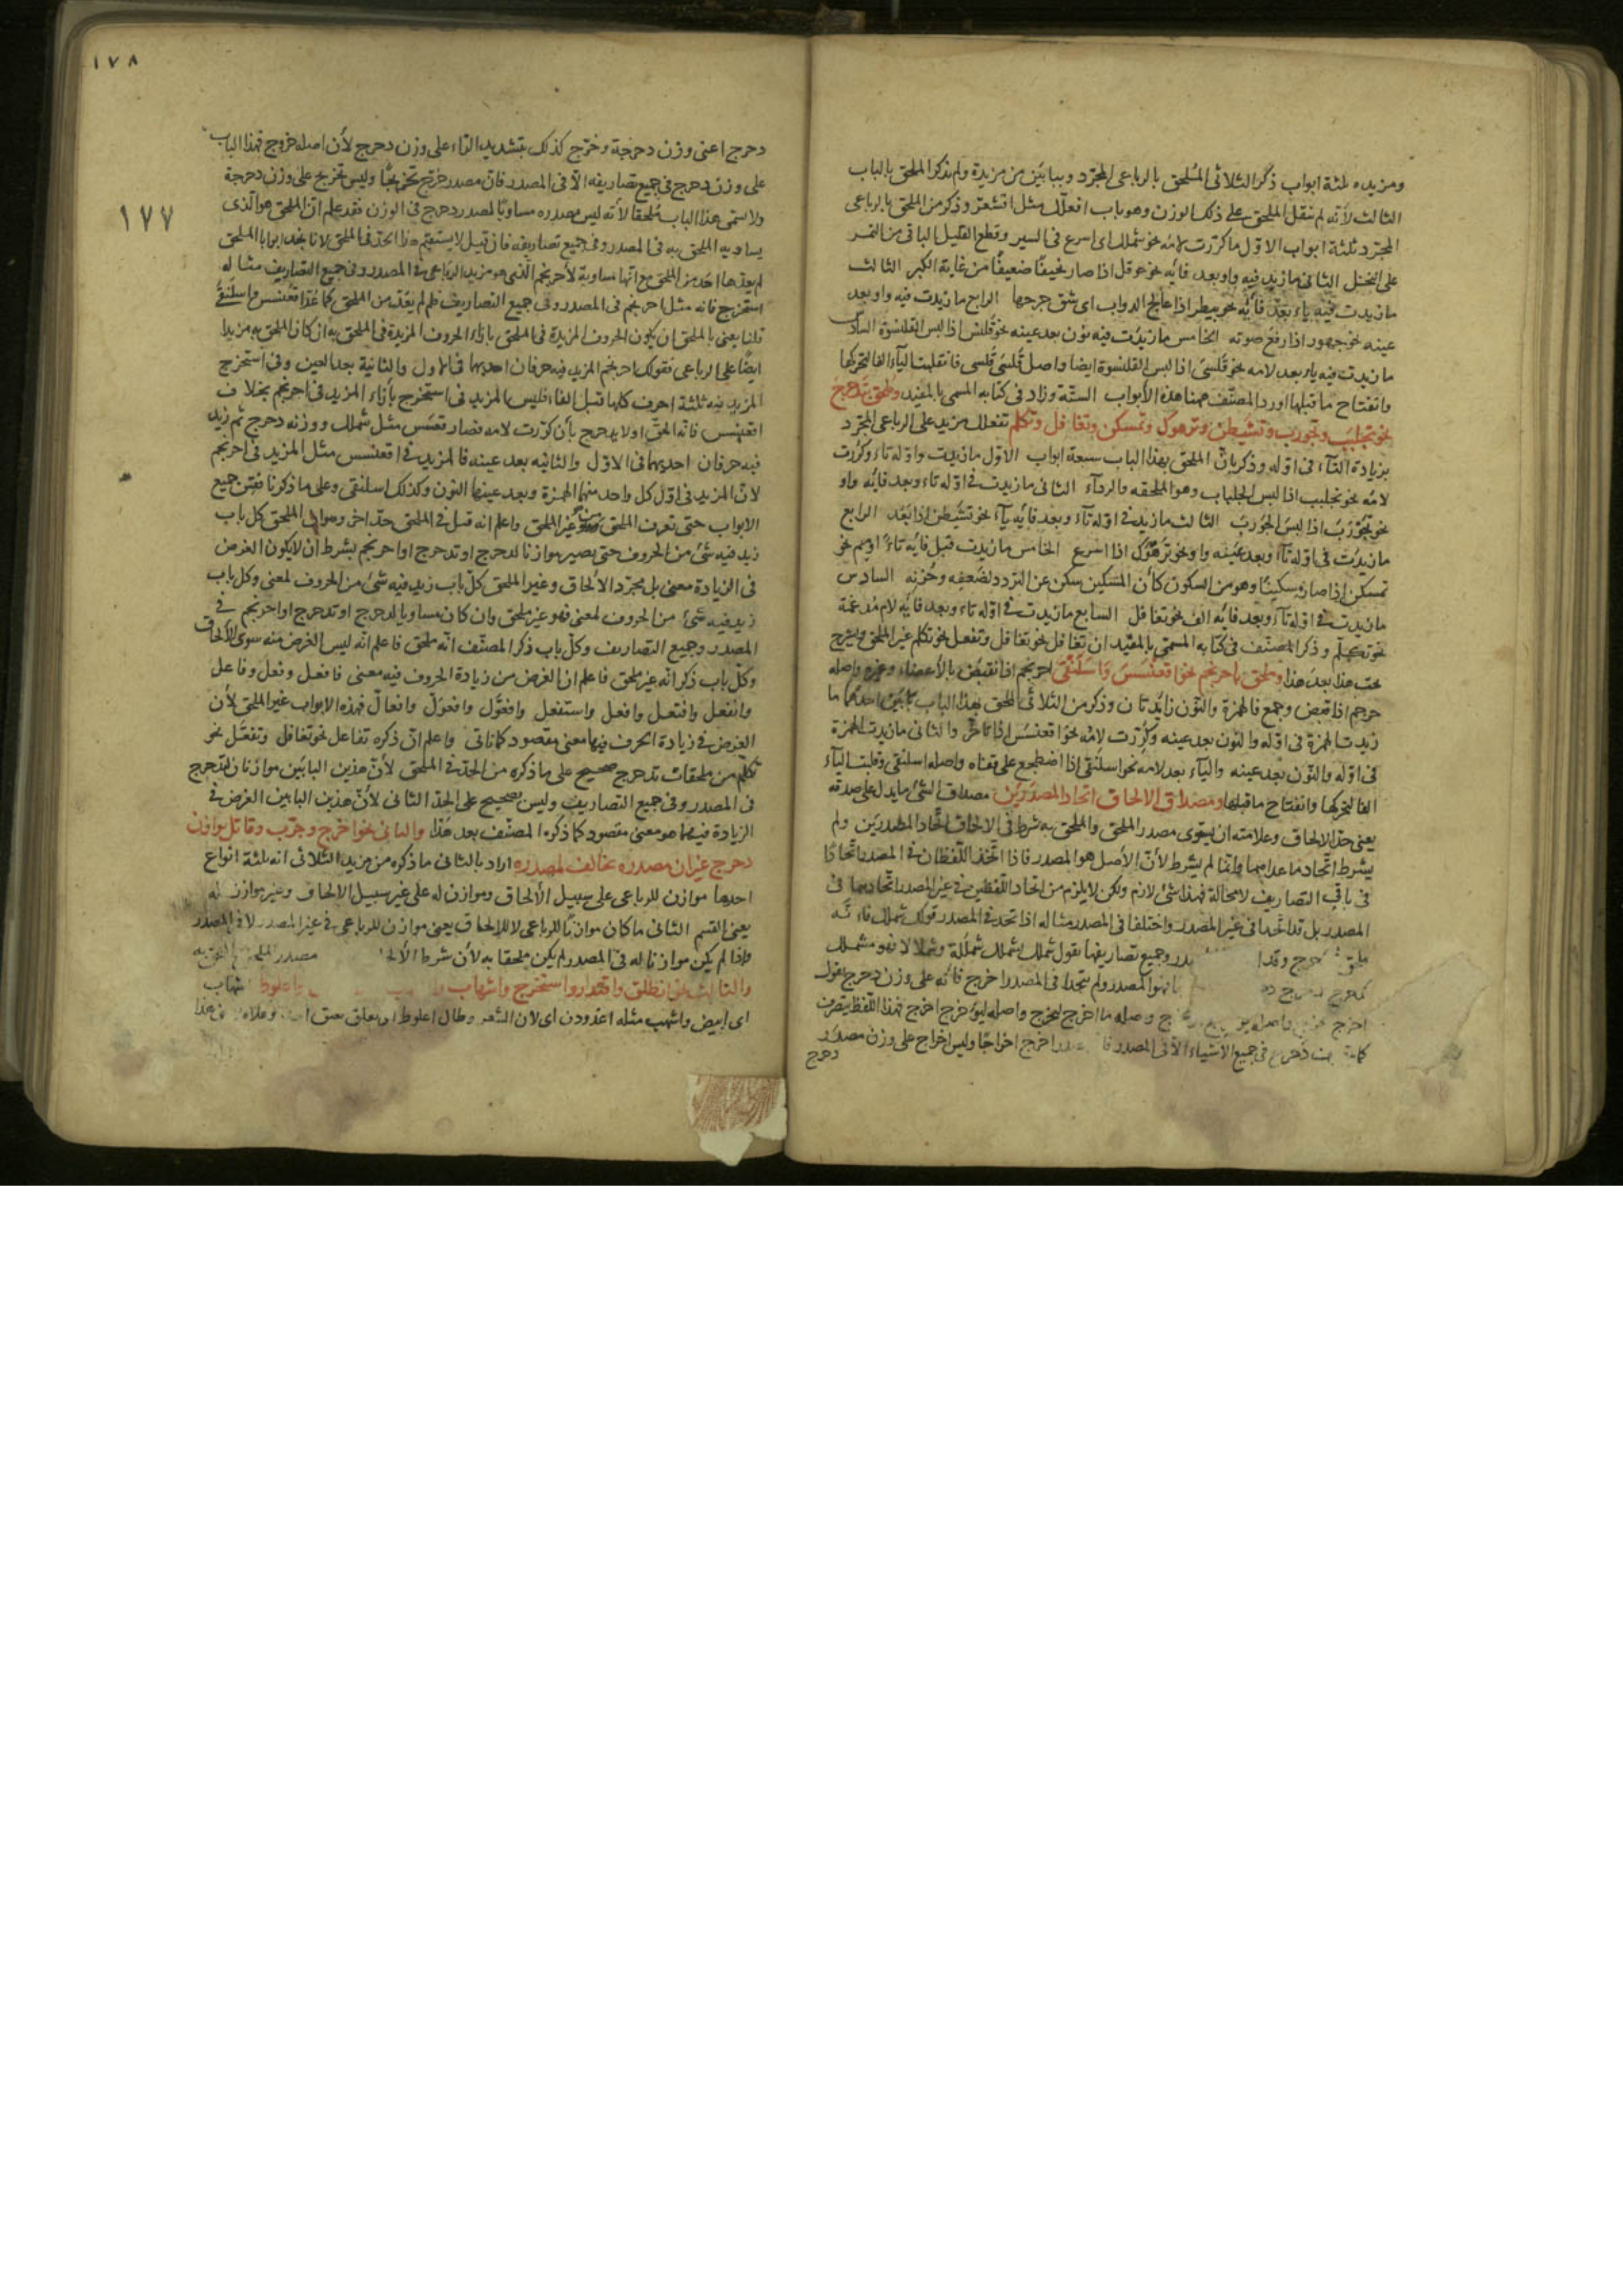 ومزيده ثلثة ابواب ذكر الثلاثى المُلحق بالرباعى المجرّد وببابَين من مزيدة ولم يذكر الملحق بالباب
الثالث لأنّه لم ينقل الملحق على ذلك الوزن وهو باب افعلّل مثل اقشعرّ وذكر من الملحق بالرباعى
المجرّد ثلثة ابواب الاوّل ما كرّرت لامُه نحو شملل اى اسرع فى السير وقطع القليل الباقى من التمر
على النخل الثانى ما زيد فيه واو بعد فائِه نحو حوقل اذا صار نحيفًا ضعيفًا من غاية الكبر الثالث
ما زيدت فيه ياء بَعدَ فائِه نحو بيطر اذا عالج الدواب اى شق جرحها الرابع ما زيدت فيه واو بعد
عينه نحو جهور اذا رفع صوته الخامس ما زيدت فيه نون بعد عينه نحو قلنس اذا لبس القلنسوة السادس
ما زيدت فيه ياء بعد لامه نحو قلسَى اذا لبس القلنسوة ايضا واصل قلسَى قلسى فانقلبت الياء الفا لتحركها
وانفتاح ما قبلها اورد المصنّف ههنا هذه الأبواب الستّة وزاد فى كتابه المسمى بالمفيد وملحق بتدحرج
نحو تجلبَبَ وتجورب وتشيطن وترهوك وتمسكن وتغافل وتكلم تفعلل مزيد على الرباعى المجرّد
بزيادة التآء فى اوّله وذكر بانّ الملحق بهذا الباب سبعة ابواب الاوّل ما زيدت واوّله تاء وكررت
لامُه نحو تجلبب اذا لبس الجلباب وهو الملحفه والردآء الثانى ما زيدت فى اوّله تاء وبعد فائِه واو
نحو تجَوْرَبَ اذا لبس الجَورَب الثالث ما زيدت فى اوله تآء وبعد فائِه يآء نحو تشيطن اذا بَعُدَ الرابع
ما زيدَت فى اوّله تآء وبعد عينِه واو نحو ترَهْوَك اذا اسرع الخامس ما زيدت قبل فائِه تاء او ميم نحو
تمسكن اذا صار مسكينًا وهو من السكون كأنّ المسكين سكن عن التردد لضعفه وحُزنه السادس
ما زيدت فى اوله تآء وبعد فائِه الف نحو تغافل السابع ما زيدت فى اوّله تاء وبعد فائِه لام مُدغمة
نحو تكلّم وذكر المصنّف فى كتابه المسمى بالمفيد ان تفاعل نحو تغافل وتفعل نحو تكلم غير الملحق وسيَجِئ
بحث هذا بعدَ هذا وملحق باحرنجم نحو اقعنْسَسَ وَاسلَنْقَى احرنجم اذا نقبض بالأعضاء وغيره واصله
حرجم اذا قبض وجمع فالهمزة والنّون زائِدتان وذكر من الثلاثى الملحق بهذا الباب بابَين احدُهما ما
زيدت الهمزة فى اوّله والنّون بعد عينه وكُرّرت لامُه نحو اقعنسَسَ اذا تأخّر والثانى ما زيدت الهمزة
فى اوّله والنّون بعد عينه واليآء بعد لامه نحو اسلَنقى اذا اضطجع على قفاه واصله اسلنقى وقلبت اليآء
الفا لتحركها وانفتاح ما قبلها ومصداق الالحاق اتحاد المصدَرَينِ مصداق الشئ ما يدل على صدقه
يعنى حدّ الالحاق وعلامته ان يستوى مصدر الملحق والملحق به شرط فى الالحاق اتّحاد المصدرَين ولم
يشرط اتّحاد ما عداهما وانّما لم يشرط لأنّ الأصل هو المصدر فاذا اتّحد اللّفظان فى المصدر اتّحادًا
فى باقى التصاريف لا محالة فهذا شئ لازم ولكن لا يلزم من اتحاد اللّفظين فى غير المصدر اتّحادهما فى
المصدر بل قد اتّحدا فى غير المصدر واختلفا فى المصدر مثاله اذا تحد فى المصدر قولك شملل فانّه
ملحق حرج وقد وجميع تصاريفها تقول شملل يشملل شملَلة وشملالا فهو مشملل
المصدر ولم يتحدا فى المصدر اخرج فانّه على وزن دحرج تقول
اخرج واصله ما اخرج ليخرج واصله ليؤخرج اخرج فهذا اللّفظ يتصرف
دحرج فى جميع الاشياء الّا فى المصدر اخرج اخراجًا وليس اخراج على وزن مصدر
دحرج
١٧٨
١٧٧
دحرج اعنى وزن دحرجة وخرّج كذلك بتشديد الراء على وزن دحرج لأن اصله خررج فهذا الباب
على وزن دحرج فى جميع تصاريفه الّا فى المصدر فانّ مصدر خرّج تخريجًا وليس تخريج على وزن دحرجة
ولا يسمّى هذا الباب مُلحقا لأنّه ليس مصدره مساويًا لمصدر دحرج فى الوزن فقد علم انّ الملحق هو الّذى
يساويه الملحق به فى المصدر وفى جميع تصاريفه فان قيل لا يستقيم هذا الحدّ فى الملحق لانا نجد ابوابا الملحق
لم يعدّها احد من الملحق مع انّها مساوية لأحرنجم الّذى هو مزيد الرباعى فى المصدر وفى جميع التصاريف مثاله
استخرج فانّه مثل احرنجم فى المصدر وفى جميع التصاريف فلم لم يعدّ من الملحق كما عُدّ اقعنسس واسلنقى
قلنا يعنى بالملحق ان يكون الحروف المزيدة فى الملحق بازاء الحروف المزيدة فى الملحق به ان كان الملحق به مزيدا
ايضًا على الرباعى فقولك احرنجم المزيد فيه حرفان احديهما فى الاول والثانية بعد العين وفى استخرج
المزيد فيه ثلثة احرف كلها قبل الفاء فليس المزيد فى استخرج بأزاء المزيد فى احرنجم بخلاف
اقعنسس فانّه الحق اولا بدحرج بأن كرّرت لامه فصار قعسَس مثل شملل ووزنه دحرج ثم زيد
فيه حرفان احديهما فى الاوّل والثانيه بعد عينه فالمزيد فى اقعنسس مثل المزيد فى احرنجم
لانّ المزيد فى اوّل كل واحد منهما الهمزة وبعد عينهما النون وكذلك اسلنقى وعلى ما ذكرنا فقس جميع
الابواب حتى تعرف الملحق من غير الملحق واعلم انه قيل فى الملحق حدّ اخر وهو انّ الملحق كل باب
زيد فيه شئ من الحروف حتى يصير موازنا لدحرج او تدحرج او احرنجم بشرط ان لا يكون الغرض
فى الزيادة معنى بل مجرّد الالحاق وغير الملحق كلّ باب زيد فيه شئ من الحروف لمعنى وكل باب
زيد فيه شئ من الحروف لمعنى فهو غير ملحق وان كان مساويا لدحرج او تدحرج او احرنجم فى
المصدر وجميع التصاريف وكلّ باب ذكر المصنّف انّه ملحق فاعلم انّه ليس الغرض منه سوى الألحاق
وكلّ باب ذكر انّه غير ملحق فاعلم ان الغرض من زيادة الحروف فيه معنى فافعل وفعّل وفاعل
وانفعل وافتعل وافعل واستفعل وافعوّل وافعوّل وافعالّ فهذه الابواب غير الملحق لأن
الغرض فى زيادة الحرف فيها معنى مقصود كما تاتى واعلم انّ ذكره تفاعل نحو تغافل وتفعّل نحو
تكلّم من ملحقات تدحرج صحيح على ما ذكره من الحدّ فى الملحق لأنّ هذين البابَين موازنان لتدحرج
فى المصدر وفى جميع التصاريف وليس بصحيح على الحدّ الثانى لأنّ هذين البابين الغرض فى
الزيادة فيهما هو معنى مقصود كما ذكره المصنّف بعد هذا والثانى نحو اخرج وجرّب وقاتل يوازن
دحرج غير ان مصدره مخالف لمصدره اراد بالثانى ما ذكره من مزيد الثلاثى انه ثلثة انواع
احدها موازن للرباعى على سبيل الألحاق وموازن له على غير سبيل الالحاق وغير موازن له
يعنى القسم الثانى ما كان موازنًا للرباعى لا للالحاق يعنى موازن للرباعى فى غير المصدر لا فى المصدر
واذا لم يكن موازنا له فى المصدر لم يكن ملحقا به لأن شرط مصدر
والثالث نحو انطلق واقتدر واستخرج واشهاب
اى ابيض واشهب مثله اغدودن اى لان الشعر وطال اعلوّط اى تعلق بعنق هذا